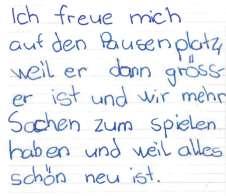 Ich freue mich
auf den Pausenplatz,
weil er dann gröss-
er ist und wir mehr
Sachen zum spielen
haben und weil alles
schön neu ist.